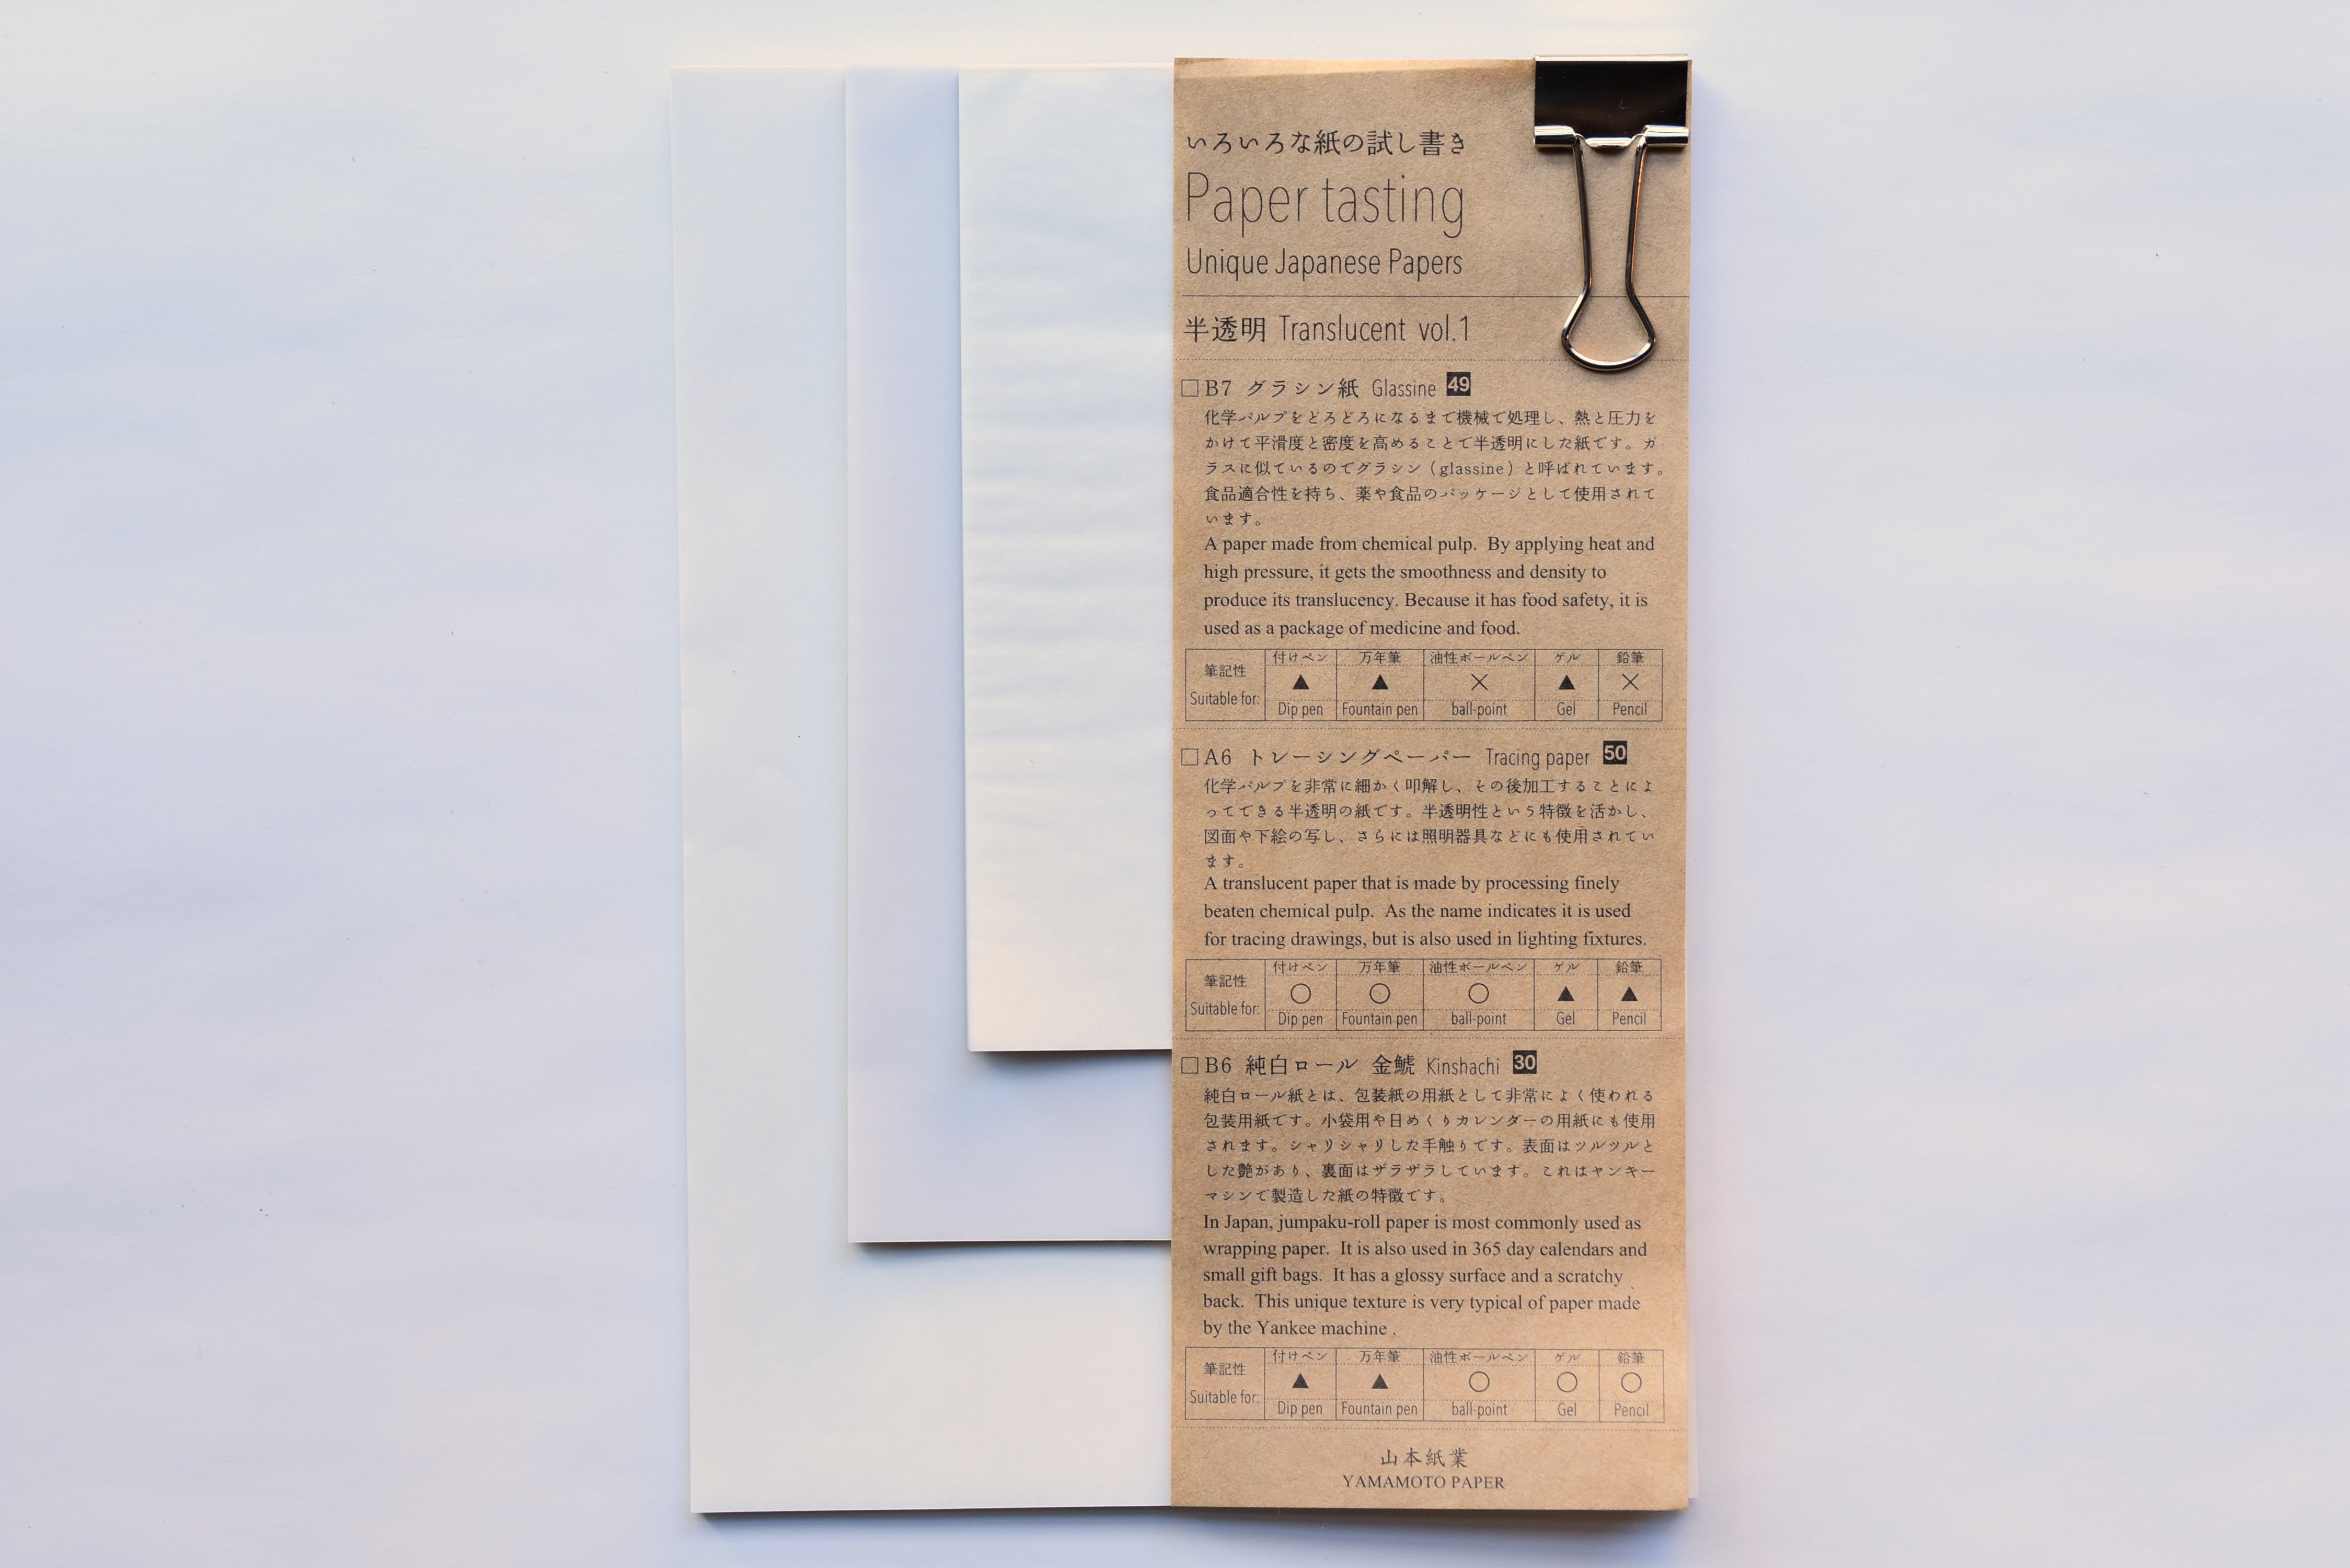 いろいろな紙の試し書き
Paper tasting
Unique Japanese Papers
半透明 Translucent vol.1
□ B7 グラシン紙 Glassine 49
化学パルプをどろどろになるまで機械で処理し、熱と圧力を
かけて平滑度と密度を高めることで半透明にした紙です。ガ
ラスに似ているのでグラシン（glassine）と呼ばれています。
食品適合性を持ち、薬や食品のパッケージとして使用されて
います。
A paper made from chemical pulp. By applying heat and
high pressure, it gets the smoothness and density to
produce its translucency. Because it has food safety, it is
used as a package of medicine and food.
筆記性 付けペン 万年筆 油性ボールペン ゲル 鉛筆
▲ ▲ × ▲ ×
Suitable for: Dip pen Fountain pen ball-point Gel Pencil
□ A6 トレーシングペーパー Tracing paper 50
化学パルプを非常に細かく叩解し、その後加工することによ
ってできる半透明の紙です。半透明性という特徴を活かし、
図面や下絵の写し、さらには照明器具などにも使用されてい
ます。
A translucent paper that is made by processing finely
beaten chemical pulp. As the name indicates it is used
for tracing drawings, but is also used in lighting fixtures.
筆記性 付けペン 万年筆 油性ボールペン ゲル 鉛筆
○ ○ ○ ▲ ▲
Suitable for: Dip pen Fountain pen ball-point Gel Pencil
□ B6 純白ロール 金鯱 Kinshachi 30
純白ロール紙とは、包装紙の用紙として非常によく使われる
包装用紙です。小袋用や日めくりカレンダーの用紙にも使用
されます。シャリシャリした手触りです。表面はツルツルと
した艶があり、裏面はザラザラしています。これはヤンキー
マシンで製造した紙の特徴です。
In Japan, jumpaku-roll paper is most commonly used as
wrapping paper. It is also used in 365 day calendars and
small gift bags. It has a glossy surface and a scratchy
back. This unique texture is very typical of paper made
by the Yankee machine .
筆記性 付けペン 万年筆 油性ボールペン ゲル 鉛筆
▲ ▲ ○ ○ ○
Suitable for: Dip pen Fountain pen ball-point Gel Pencil
山本紙業
YAMAMOTO PAPER